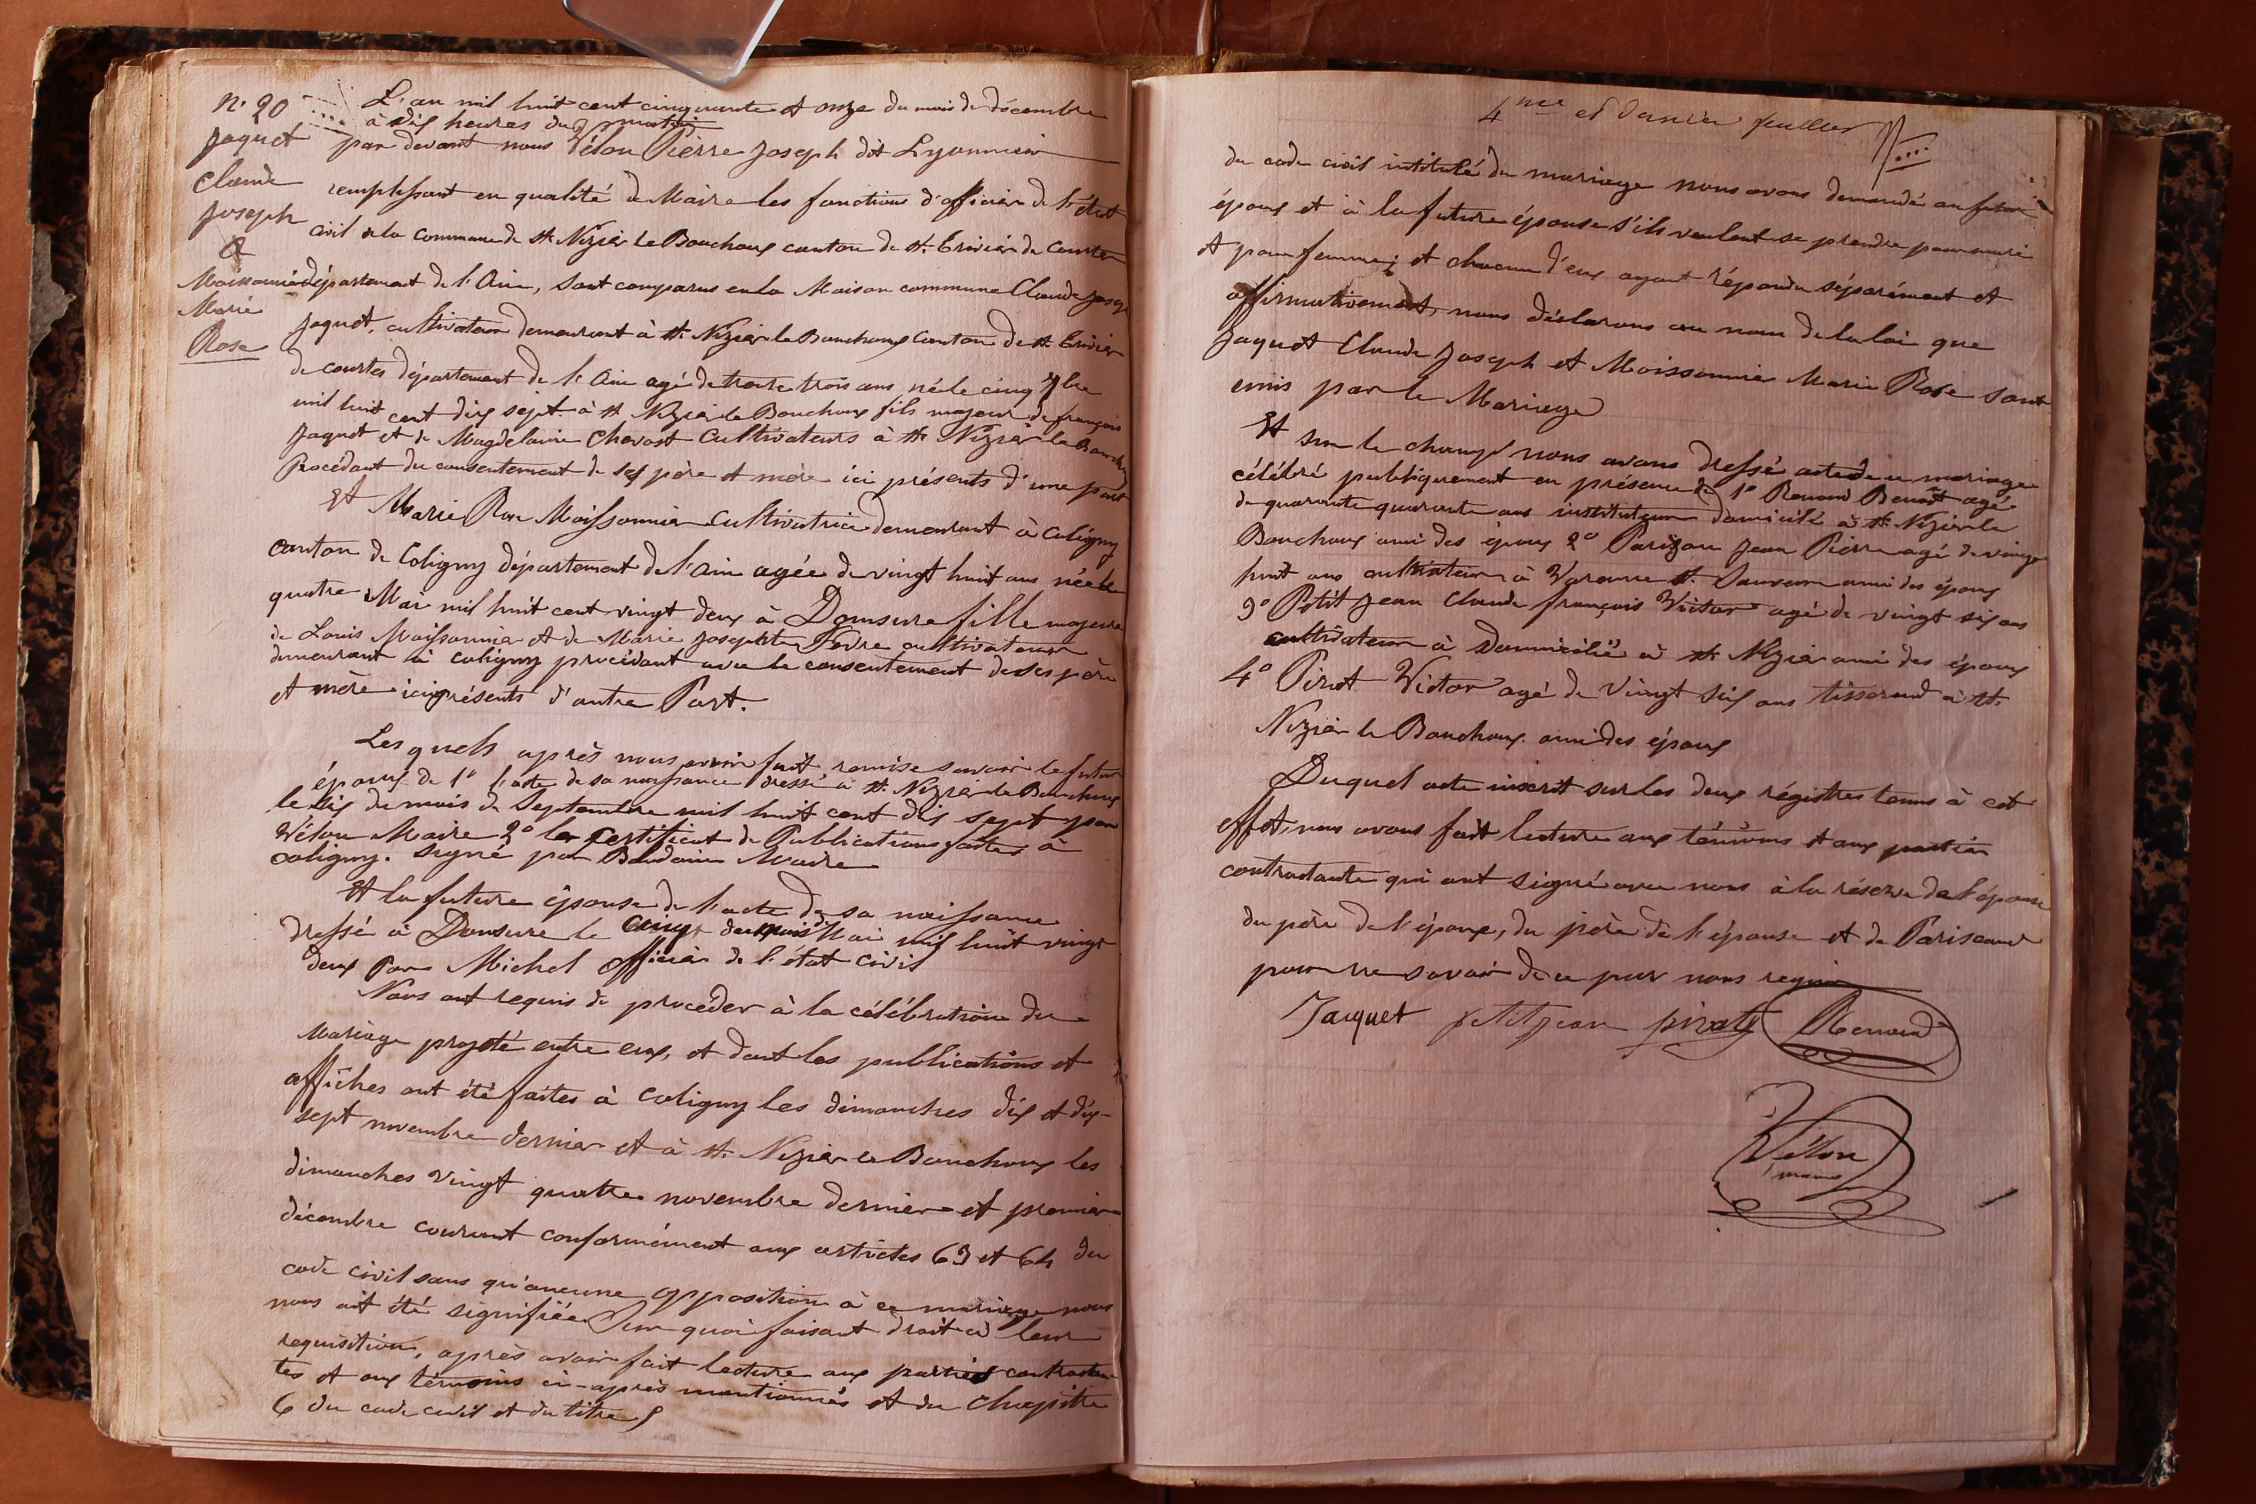 n° 20
Jaquet
Claude
Joseph
&
Moissonnier
Marie
Rose
L'an mil huit cent cinquante et onze du mois de décembre
à dix heures du matin
par devant nous Vélon Pierre Joseph dit Lyonnier
remplissant en qualité de Maire les fonctions d'officier de l'état
civil de la commune de St Nizier le Bouchoux canton de St. Trivier de Courtes
département de l'Ain, sont comparus en la Maison commune Claude Joseph
Jaquet, cultivateur demeurant à St Nizier le Bouchoux canton de St. Trivier
de courtes département de l'Ain agé de trente trois ans né le cinq 7bre
mil huit cent dix sept à St Nizier le Bouchoux fils majeur de françois
Jaquet et de Magdelaine Chevast Cultivateurs à St Nizier le Bouchoux
Procédant du consentement de ses père et mère ici présents d'une part
Et Marie Rose Moissonnier cultivatrice demeurant à Coligny
canton de Coligny département de l'ain agée de vingt huit ans née le
quatre Mai mil huit cent vingt deux à Domsure fille majeure
de Louis Moissonnier et de Marie Josephte Fèvre cultivateurs
demeurant à coligny procédant avec le consentement de ses père
et mère ici présents d'autre Part.
Lesquels après nous avoir fait remise savoir le futur
époux de 1° l'acte de sa naissance dressé à St. Nizier le Bouchoux
le six du mois de Septembre mil huit cent dix sept par
Vélon Maire 2° le Certificat de Publications faites à
coligny. signé par Baudoin Maire
Et la future épouse de l'acte de sa naissance
dressé à Domsure le cinq du mois Mai mil huit vingt
deux Par Michel officier de l'état civil
Nous ont requis de procéder à la célébration du
Mariage projeté entre eux, et dont les publications et
affiches ont été faites à coligny les dimanches dix et dix-
sept novembre dernier et à St. Nizier le Bouchoux les
dimanches vingt quatre novembre dernier et premier
décembre courant conformément aux articles 63 et 64 du
code civil sans qu'aucune opposition à ce mariage nous
nous ait été signifiée Sur quoi faisant droit à leur
requisition, après avoir fait lecture aux parties contractan
tes et aux témoins ci-après mentionnés et du chapitre
6 du code civil et du titre 5
4me et dernier feuillet
du code civil intitulé du mariage nous avons demandé au futur
époux et à la future épouse s'ils veulent se prendre pour mari
et pour femme; et chacun d'eux ayant répondu séparément et
affirmativement, nous déclarons au nom de la loi que
Jaquet Claude Joseph et Moissonnier Marie Rose sont
unis par le Mariage
Et sur le champ nous avons dressé acte de ce mariage
célébré publiquement en présence de 1° Renaud Benoît agé
de quarante quarante ans instituteur domicilié à St. Nizier le
Bouchoux ami des époux 2° Parizau Jean Pierre agé de vingt
huit ans cultivateur à Varenne St. Sauveur ami des époux
3° Petit Jean Claude françois Victor agé de vingt six ans
cultivateur à Domicilié à St. Nizier ami des époux
4° Pirat Victor agé de Vingt six ans tisserand à St.
Nizier le Bouchoux ami des époux
Duquel acte inscrit sur les deux régistres tenus à cet
effet, nous avons fait lecture aux témoins et aux parties
contractante qui ont signé avec nous à la réserve de l'épouse
du père de l'époux, du père de l'épouse et de Pariseau
pour ne savoir de ce par nous requis
Jacquet petitjean pirat Renaud
Vélon
maire